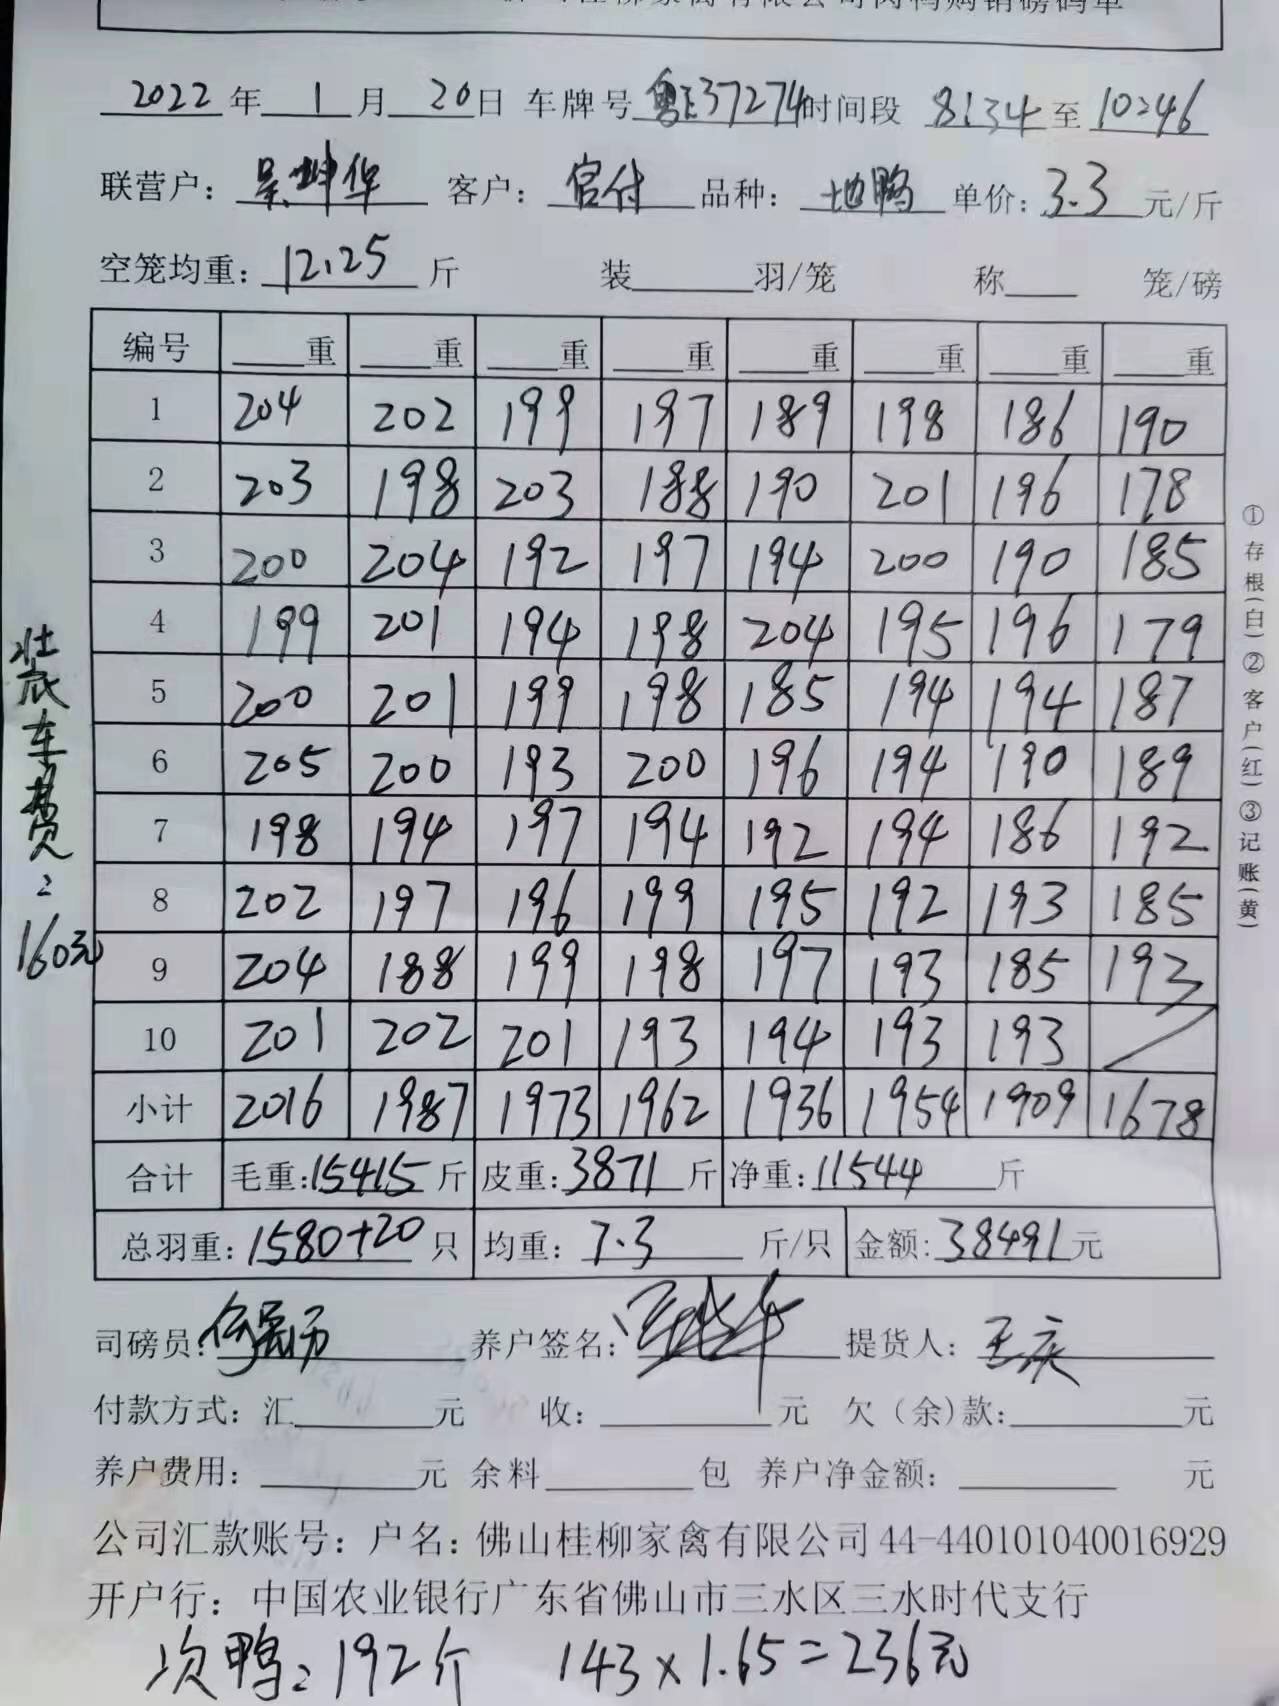 桂柳家禽有限公司肉鸭购销磅码单
2022年1月20日 车牌号粤E37274时间段 8:34至10:46
联营户：吴坤华 客户：官付 品种：地鸭 单价：3.3元/斤
空笼均重：12.25斤 装____羽/笼 称____笼/磅
编号 ____重 ____重 ____重 ____重 ____重 ____重 ____重 ____重
1 204 202 199 197 189 198 186 190
2 203 198 203 188 190 201 196 178
3 200 204 192 197 194 200 190 185
4 199 201 194 198 204 195 196 179
5 200 201 199 198 185 194 194 187
6 205 200 193 200 196 194 190 189
7 198 194 197 194 192 194 186 192
8 202 197 196 199 195 192 193 185
9 204 188 199 198 197 193 185 193
10 201 202 201 193 194 193 193 /
小计 2016 1987 1973 1962 1936 1954 1909 1678
合计 毛重:15415斤 皮重:3871斤 净重:11544斤
总羽重：1580+20只 均重：7.3斤/只 金额:38491元
司磅员: 养户签名: 提货人：王庆
付款方式：汇____元 收：____元 欠（余)款:____元
养户费用：____元 余料____包 养户净金额：____元
公司汇款账号：户名：佛山桂柳家禽有限公司44-440101040016929
开户行：中国农业银行广东省佛山市三水区三水时代支行
次鸭：192斤 143×1.65=236元
车费：160元
①存根(白)②客户(红)③记账(黄)